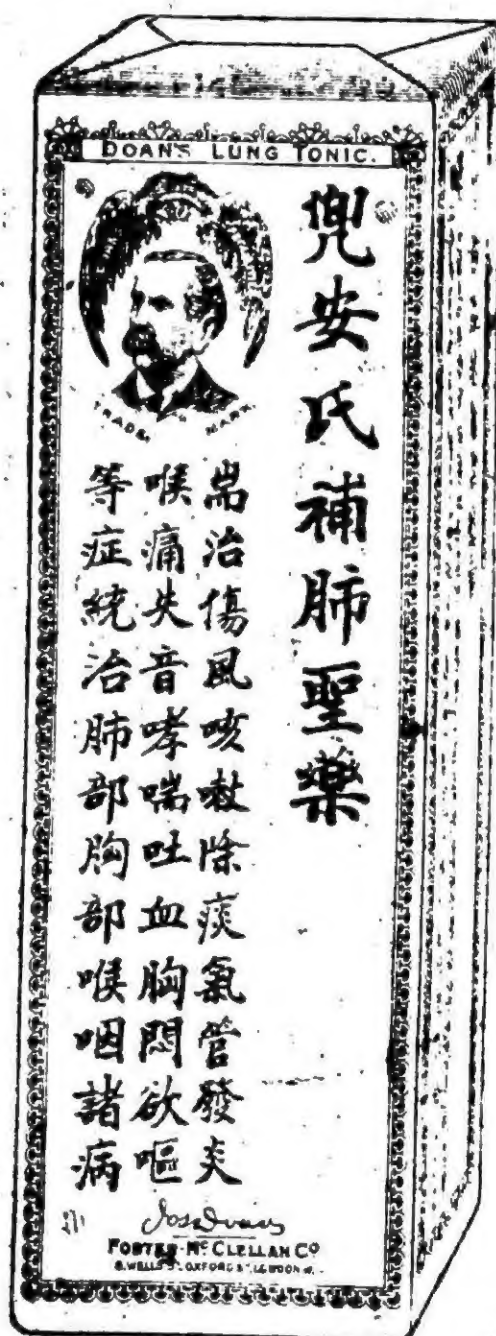 DOAN'S LUNG TONIC.
兜安氏補肺聖藥
TRADE MARK
耑治傷風咳嗽除痰氣管發炎
喉痛失音哮喘吐血胸悶欲嘔
等症統治肺部胸部喉咽諸病
FOSTER-McCLELLAN CO
8, WELLS ST OXFORD ST, LONDON W.